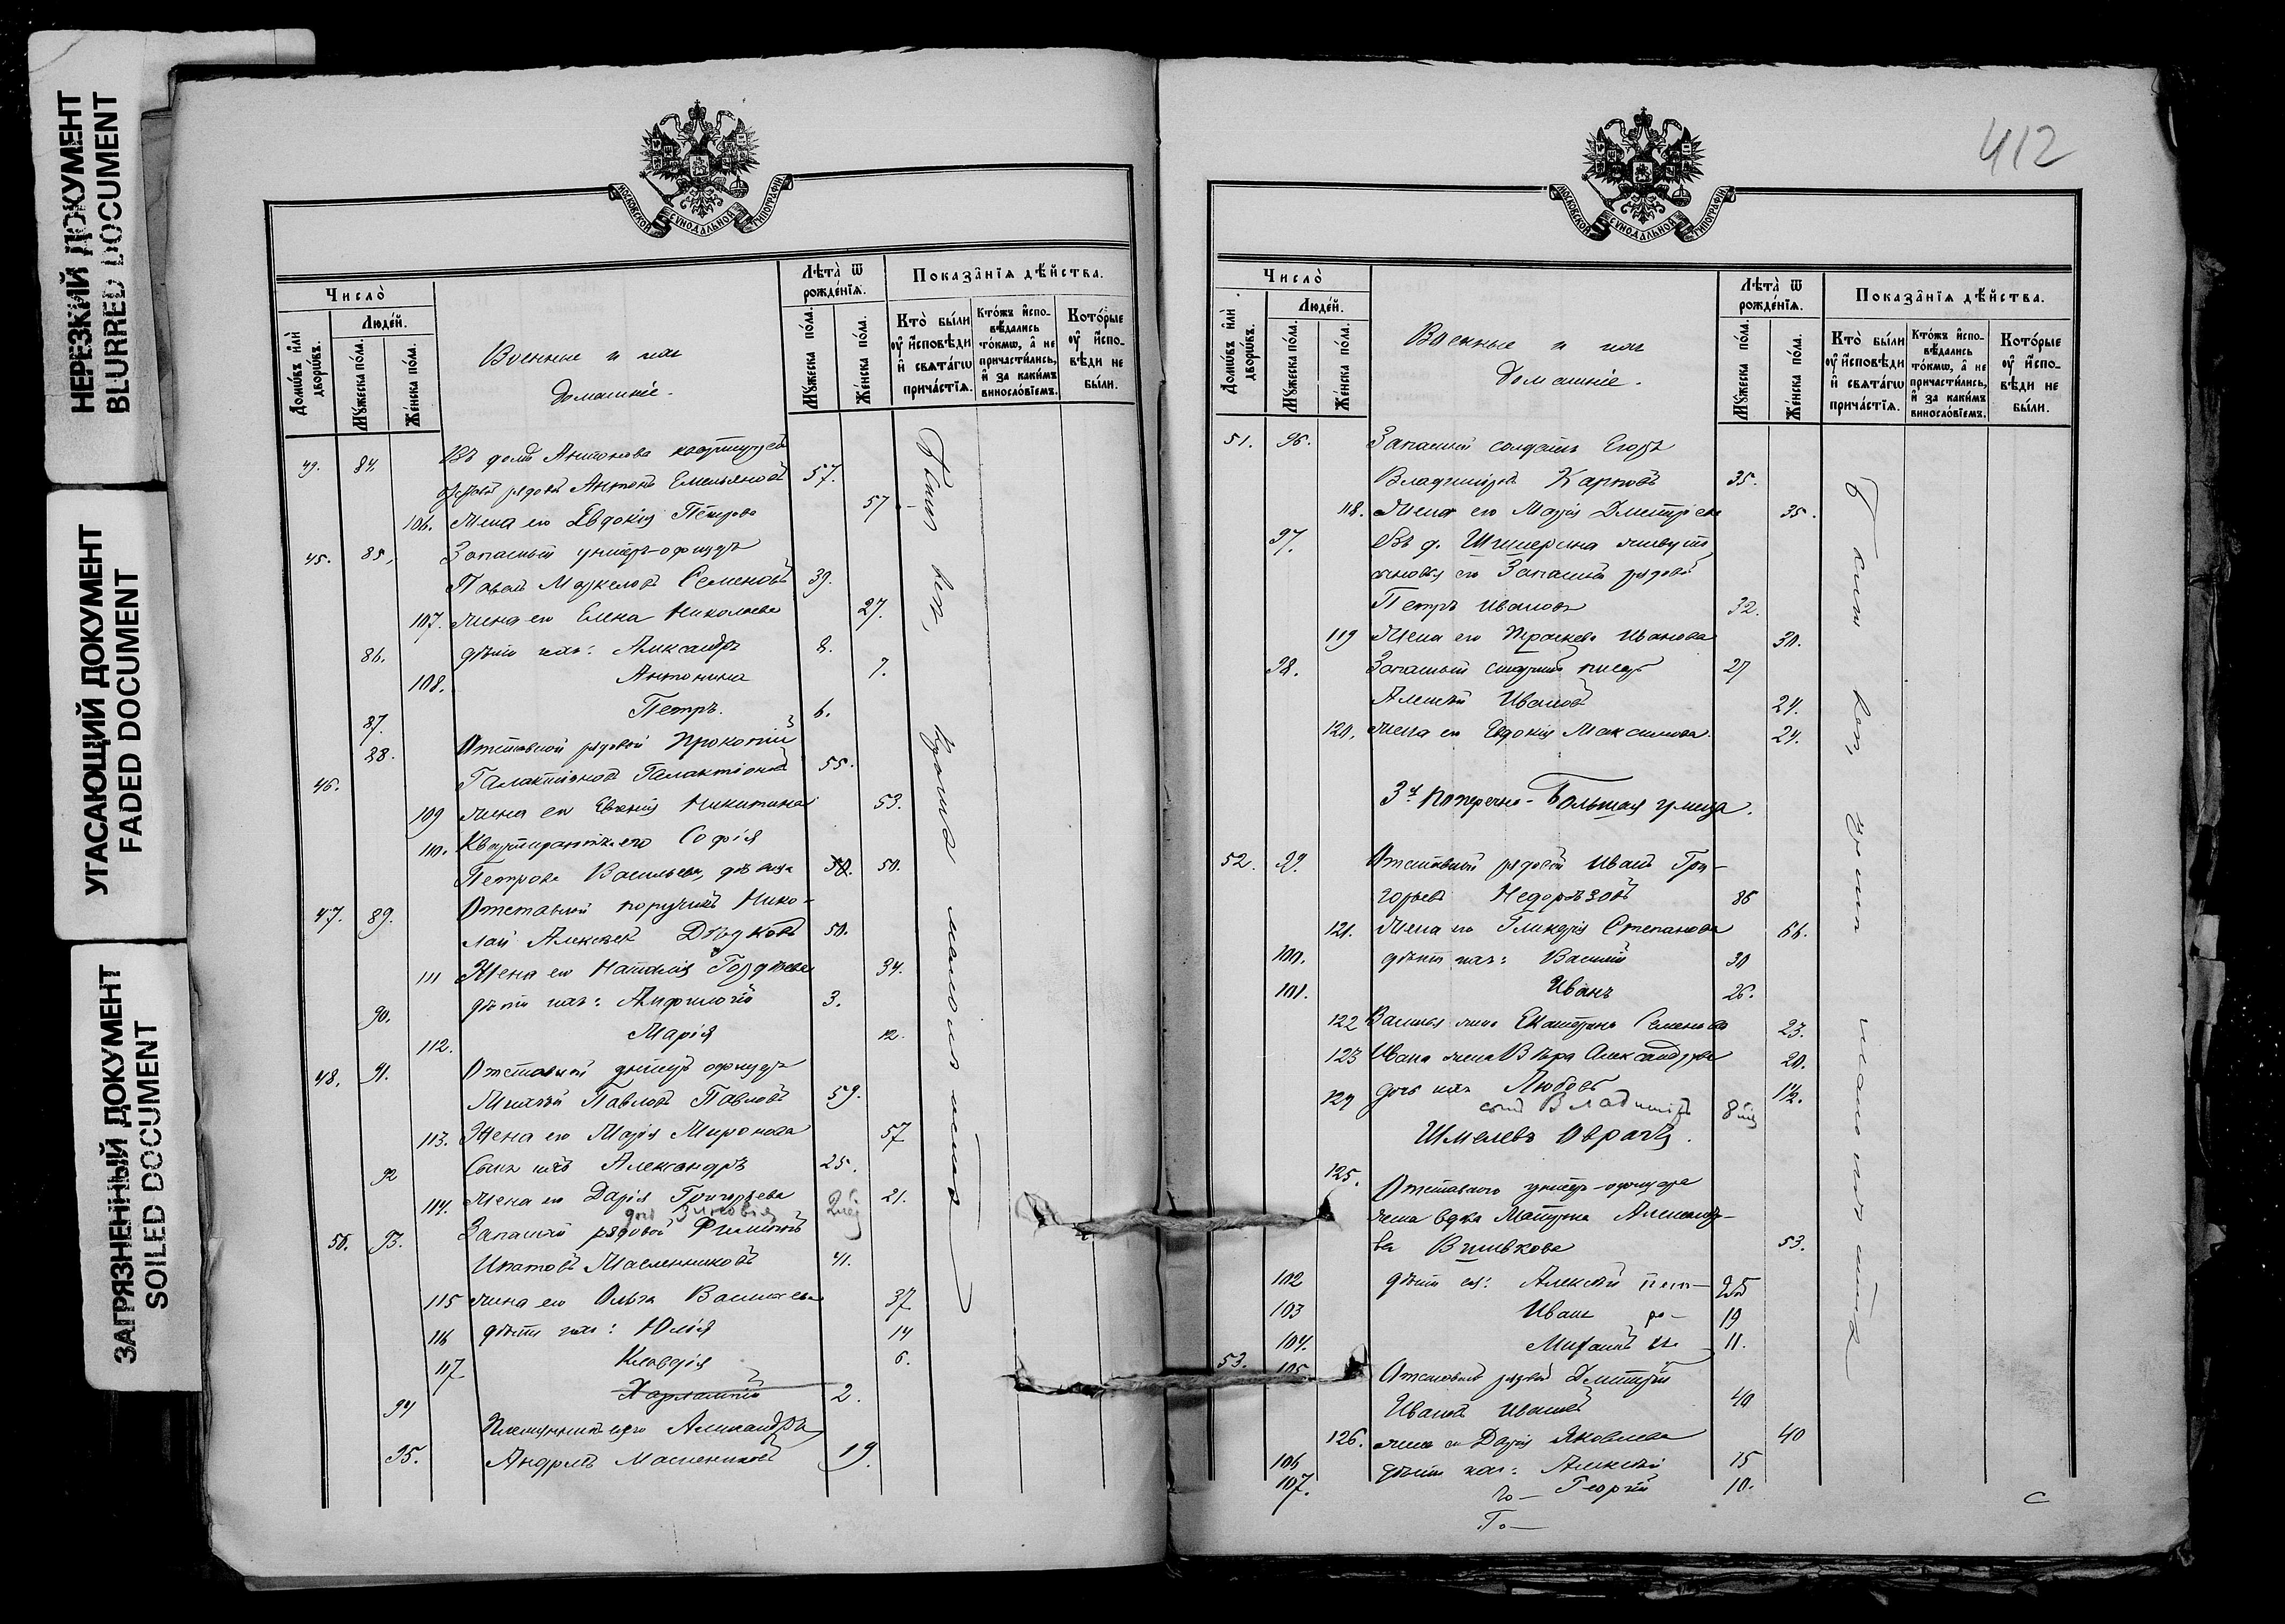 НЕРЕЗКИЙ ДОКУМЕНТ
BLURRED DOCUMENT
УГАСАЮЩИЙ ДОКУМЕНТ
FADED DOCUMENT
ЗАГРЯЗНЕННЫЙ ДОКУМЕНТ
SOILED DOCUMENT
МОСКОВСКОЙ СѴНОДАЛЬНОЙ ТИПОГРАФІИ
Число̀
Домѡ́въ и҆лѝ дворѡ́въ.
Люде́й.
Мꙋ́жеска по́ла.
Же́нска по́ла.
Военные и ихъ
домашніе.
Лѣта̀ ѿ рожде́нїѧ.
Мꙋ́жеска по́ла.
Же́нска по́ла.
Показа̑нїѧ дѣ́йства.
Кто̀ бы́ли ᲂу҆ и҆сповѣ́ди и҆ свѧта́гѡ прича́стїѧ.
Кто́жъ и҆спо-вѣ́дались то́кмѡ, а҆ не причасти́лись, и҆ за каки́мъ винослові́емъ.
Кото́рые ᲂу҆ и҆спо-вѣ́ди не бы́ли.
49. 84. Въ домѣ Антонова
рядов. Антонъ Емельяновъ 57.
106. жена его Евдокія Петрова 57
45. 85. Запасный унтеръ-офицеръ
Павелъ Маркеловъ Семеновъ 39.
107. жена его Елена Николаева 27.
86. дѣти ихъ: Александръ 8.
108. Антонина 7.
87. Петръ. 6.
46. 88. Отставной рядовой Прокопій
Галактіоновъ Галактіоновъ 55.
109 жена его Евгенія Никитина 53.
110. Квартирантка его Софія
Петрова Васильева, дѣвица 50. 50.
47. 89. Отставной поручикъ Нико-
лай Алексѣев Дѣдковъ 50.
111 Жена его Наталія Гордѣева 34.
90. дѣти ихъ: Амфилогій 3.
112. Марія 12.
48. 91. Отставной унтеръ офицеръ
Михаилъ Павловъ Павловъ 59.
113. Жена его Марія Миронова 57
92 Сынъ ихъ Александръ 25.
114. жена его Дарія Григорьева 21.
дочь Зиновія
50. 93. Запасный рядовой Филиппъ
Ипатовъ Масленниковъ 41.
115 жена его Ольга Васильева 37
116 дѣти ихъ: Юлія 14
117 Клавдія 6.
94 Харлампій 2.
Племянникъ его Александръ
95. Андреевъ Масленниковъ 19.
Были всѣ, кромѣ малолѣтнихъ
412
МОСКОВСКОЙ СѴНОДАЛЬНОЙ ТИПОГРАФІИ
Число̀
Домѡ́въ и҆лѝ дворѡ́въ.
Люде́й.
Мꙋ́жеска по́ла.
Же́нска по́ла.
Военные и ихъ
домашніе.
Лѣта̀ ѿ рожде́нїѧ.
Мꙋ́жеска по́ла.
Же́нска по́ла.
Показа̑нїѧ дѣ́йства.
Кто̀ бы́ли ᲂу҆ и҆сповѣ́ди и҆ свѧта́гѡ прича́стїѧ.
Кто́жъ и҆спо-вѣ́дались то́кмѡ, а҆ не причасти́лись, и҆ за каки́мъ винослові́емъ.
Кото́рые ᲂу҆ и҆спо-вѣ́ди не бы́ли.
51. 96. Запасный солдатъ Егоръ
Владиміровъ Карповъ 35.
118. Жена его Марія Дмитріева 35.
97. Въ д. живутъ
сыновья его Запасный рядовой
Петръ Ивановъ 32.
119 Жена его Ивановна 30.
98. Запасный старшій писарь 27
Алексѣй Ивановъ 24.
120. жена его Евдокія Максимова. 24.
3я Поперечно-Большая улица.
52. 99. Отставной рядовой Иванъ Гри-
горьевъ Недорѣзовъ 86
121. Жена его Гликерія Степанова 66.
100. дѣти ихъ: Василій 30
101. Иванъ 26.
122 Василья жена Екатерина Семенова 23.
123 Ивана жена Вѣра Александрова 20.
124 дочь ихъ Любовь 1½.
сынъ Владиміръ
125. Отставного унтеръ-офицера
жена вдова Матрона Алексѣе-
ва 53.
102 дѣти ея: Алексѣй 25
103 Иванъ 19
104. Михаилъ 11.
53. 105 Отставной рядовой Дмитрій
Ивановъ Ивановъ 40
126. жена его Дарія Яковлева 40
106 дѣти ихъ: Алексѣй 15
107. Георгій 10.